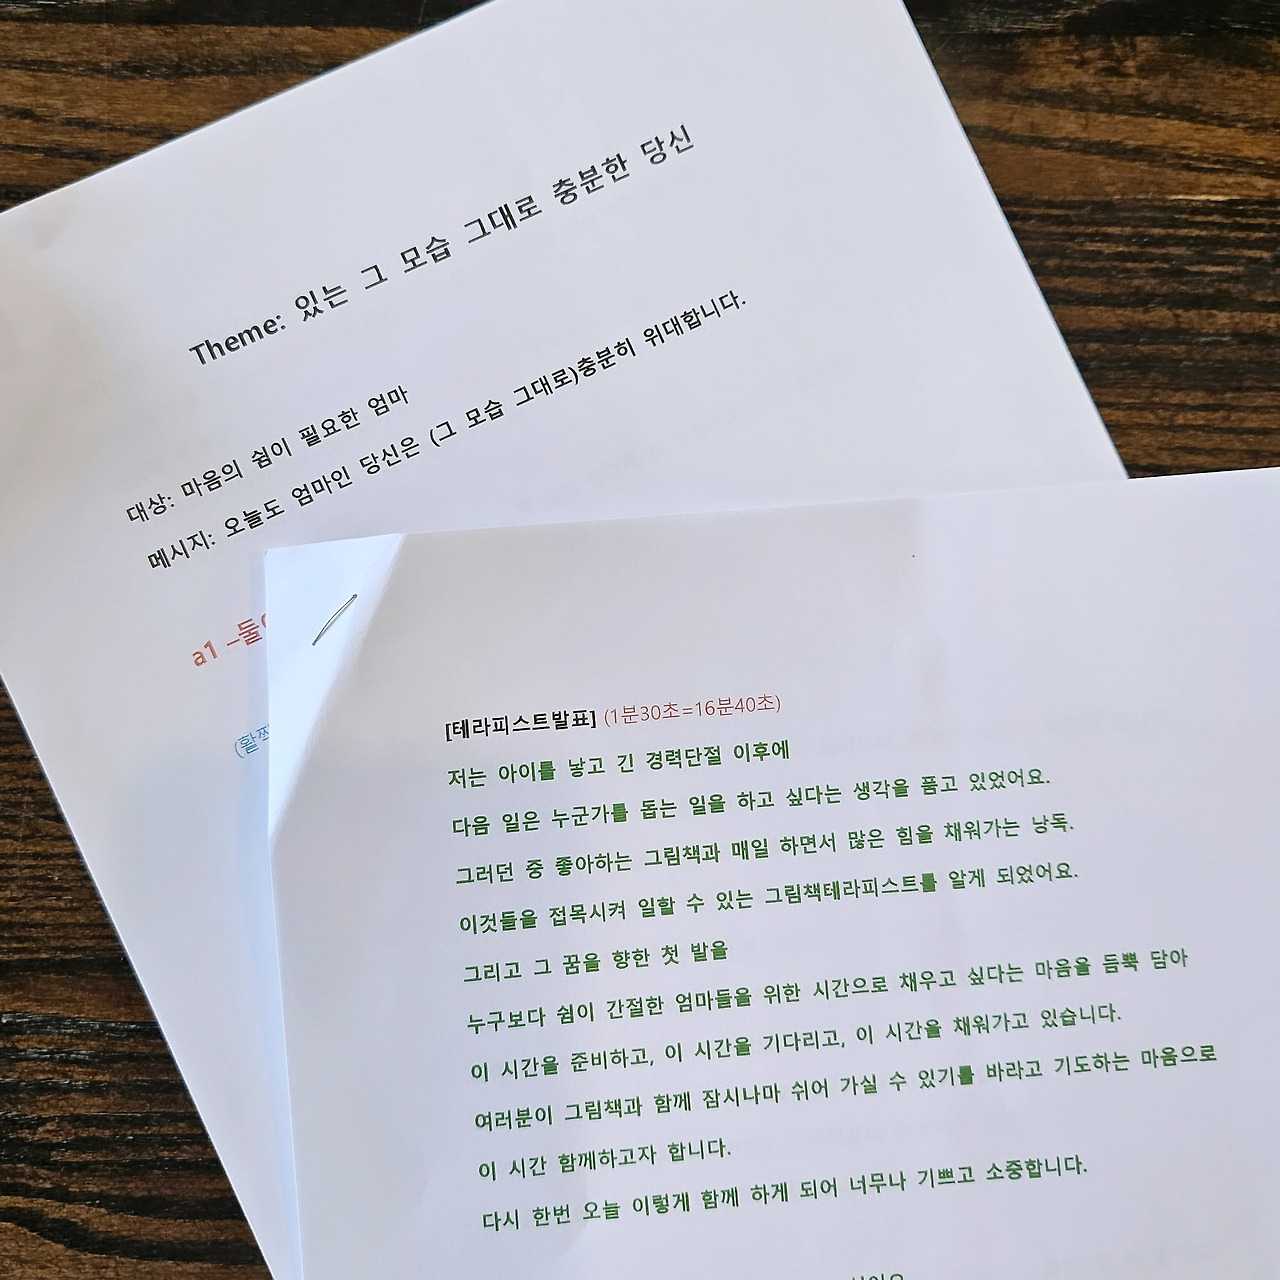 Theme: 있는 그 모습 그대로 충분한 당신
대상: 마음의 쉼이 필요한 엄마
메시지: 오늘도 엄마인 당신은 (그 모습 그대로)충분히 위대합니다.
a1 –둘
(활짝
[테라피스트발표] (1분30초=16분40초)
저는 아이를 낳고 긴 경력단절 이후에
다음 일은 누군가를 돕는 일을 하고 싶다는 생각을 품고 있었어요.
그러던 중 좋아하는 그림책과 매일 하면서 많은 힘을 채워가는 낭독.
이것들을 접목시켜 일할 수 있는 그림책테라피스트를 알게 되었어요.
그리고 그 꿈을 향한 첫 발을
누구보다 쉼이 간절한 엄마들을 위한 시간으로 채우고 싶다는 마음을 듬뿍 담아
이 시간을 준비하고, 이 시간을 기다리고, 이 시간을 채워가고 있습니다.
여러분이 그림책과 함께 잠시나마 쉬어 가실 수 있기를 바라고 기도하는 마음으로
이 시간 함께하고자 합니다.
다시 한번 오늘 이렇게 함께 하게 되어 너무나 기쁘고 소중합니다.